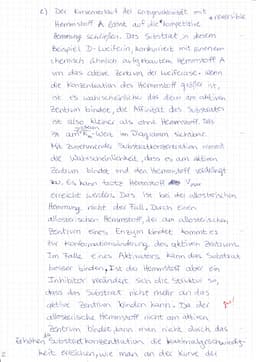 c) Der Kurvenverlauf der Enzymaktivität mit
Hemmstoff A lässt auf die kompetitive reversible
Hemmung schließen. Das Substrat, in diesem
Beispiel D-Luciferin, konkurriert mit einem
chemisch ähnlich aufgebautem Hemmstoff A
um das aktive Zentrum der Luciferase. Wenn
die Konzentration des Hemmstoff größer ist,
ist es wahrscheinlicher, das dieser am aktiven
Zentrum bindet, die Affinität des Substrates
ist also kleiner als ohne Hemmstoff. Das
ist am größeren Km-Wert im Diagramm sichtbar.
Mit zunehmender Substratkonzentration nimmt
die Wahrscheinlichkeit, dass es am aktiven
Zentrum bindet und den Hemmstoff verdrängt
zu. Es kann trotz Hemmstoff Vmax
erreicht werden. Das ist bei der allosterischen
Hemmung nicht der Fall. Durch einen
allosterischen Hemmstoff, der am allosterischen
Zentrum eines Enzym bindet kommt es
zur Konformationsänderung des aktiven Zentrums.
Im Falle eines Aktivators kann das Substrat
besser binden. Ist der Hemmstoff aber ein
Inhibitor verändert sich die Struktur so,
dass das Substrat nicht mehr an das
aktive Zentrum binden kann. Da der
allosterische Hemmstoff nicht am aktiven
Zentrum bindet, kann man nicht durch das
Erhöhen Substratkonzentration die Maximalgeschwindig-
keit erreichen, wie man an der Kurve der